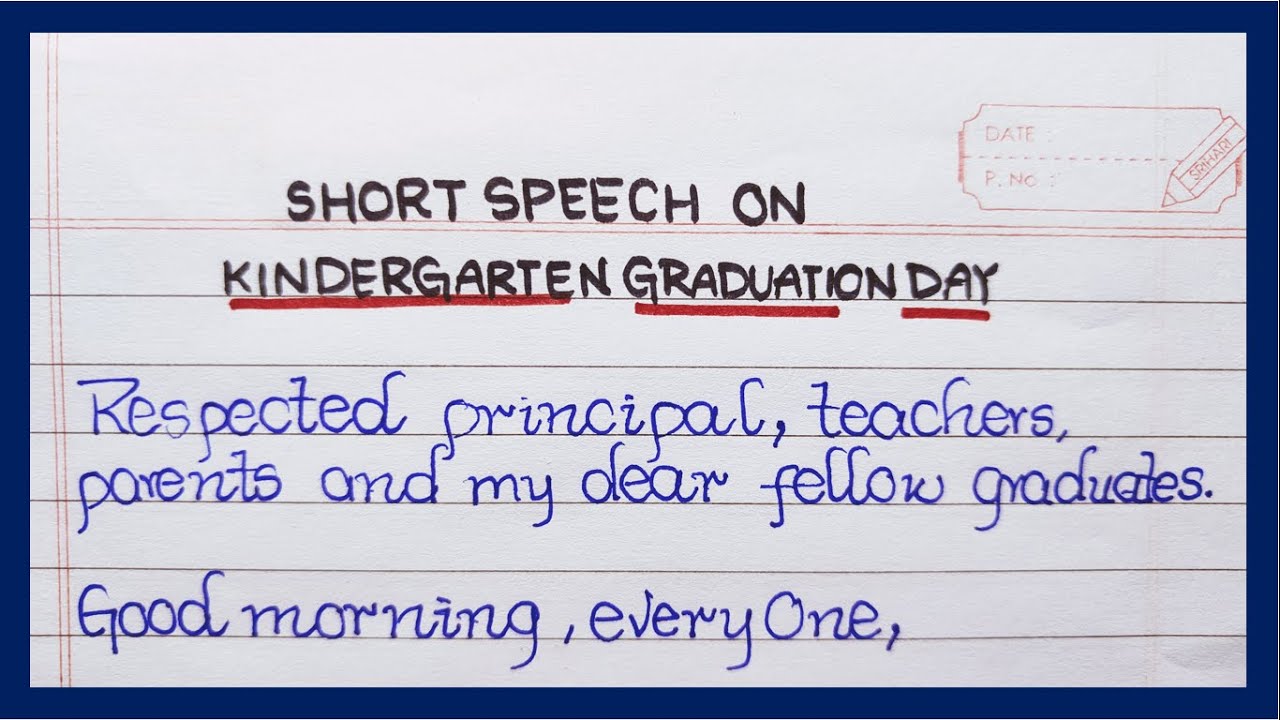 DATE :
P. NO :
SRIHARI
SHORT SPEECH ON
KINDERGARTEN GRADUATION DAY
Respected principal, teachers,
parents and my dear fellow graduates.
Good morning, everyOne,